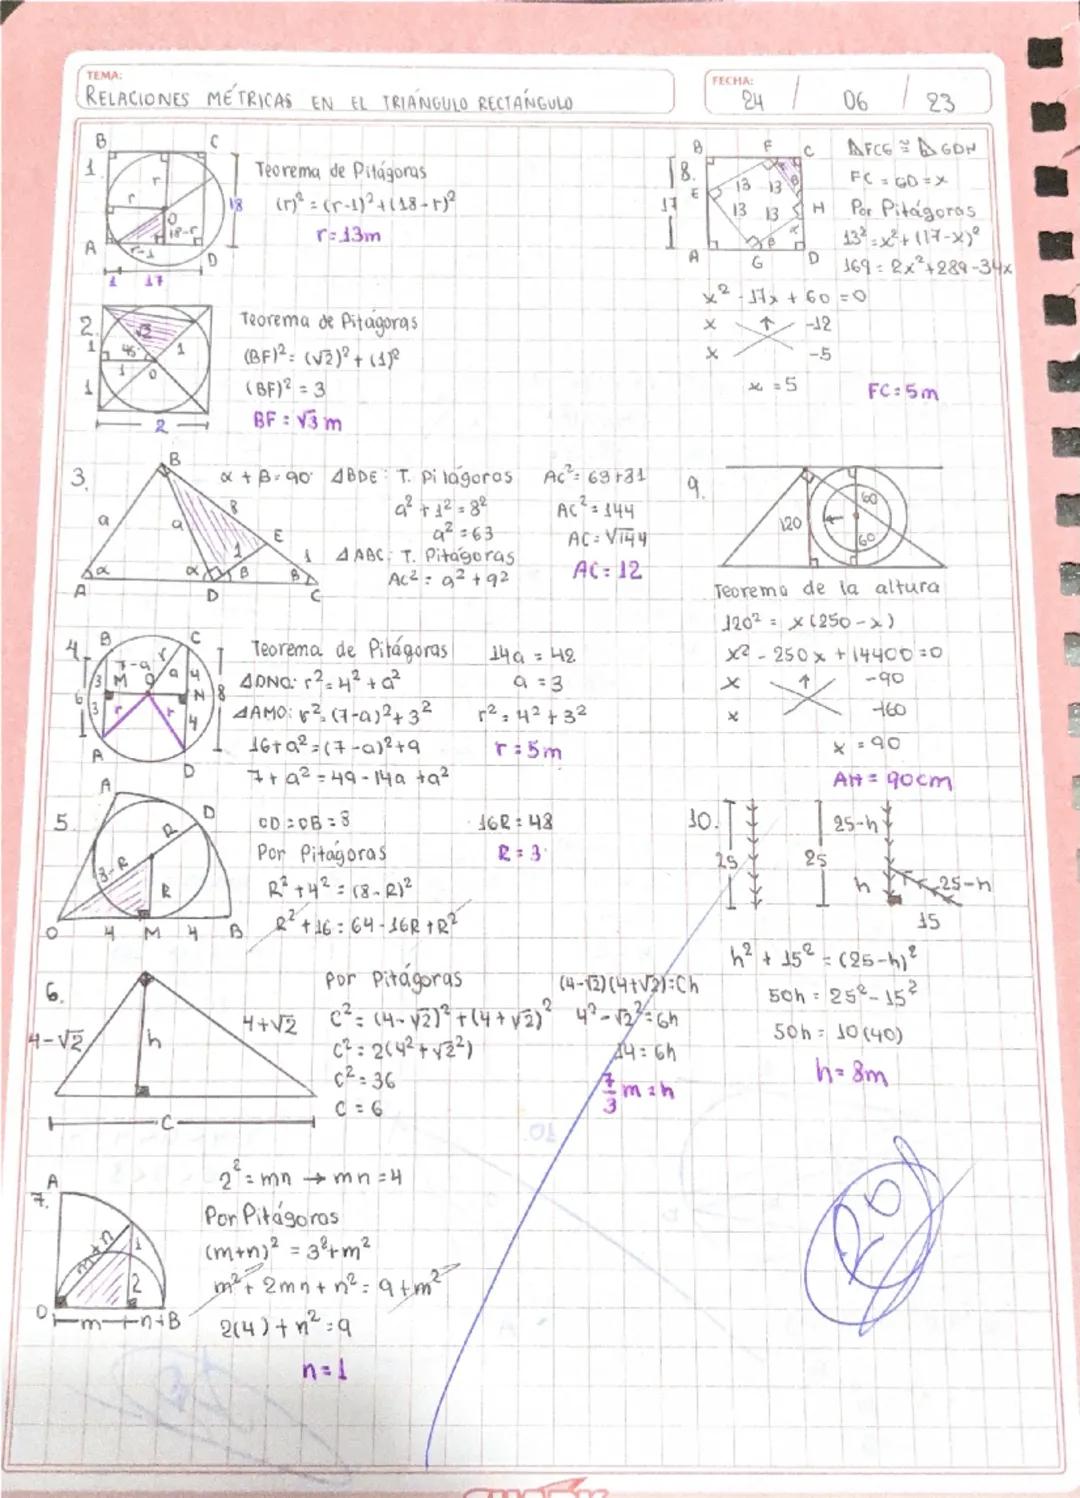 TEMA:
RELACIONES MÉTRICAS EN EL TRIÁNGULO RECTÁNGULO
FECHA:
24 / 06 / 23
1.
B
C
r
r
O
18-r
r-1
A
D
18
1 17
Teorema de Pitágoras
(r)² = (r-1)² + (18-r)²
r = 13m
2.
√2
1
45°
1
1
O
1
2
Teorema de Pitágoras
(BF)² = (√2)² + (1)²
(BF)² = 3
BF = √3 m
3.
B
a
a
8
E
1
1
α
α
β
β
A
D
C
α + β = 90°
⊿BDE: T. Pitágoras
a² + 1² = 8²
a² = 63
⊿ABC: T. Pitágoras
AC² = a² + 9²
AC² = 63+81
AC² = 144
AC = √144
AC = 12
4.
B
C
7-a
r
3
M
O
a
4
N
6
8
3
r
r
4
A
D
Teorema de Pitágoras
⊿DNO: r² = 4² + a²
⊿AMO: r² = (7-a)² + 3²
16+a² = (7-a)²+9
7+ a² = 49 - 14a + a²
14a = 42
a = 3
r² = 4² + 3²
r = 5m
5.
A
D
R
8-R
R
O 4 M 4 B
OD = OB = 8
Por Pitágoras
R² + 4² = (8-R)²
R² + 16 = 64 - 16R + R²
16R = 48
R = 3
6.
4-√2
h
4+√2
C
Por Pitágoras
C² = (4-√2)² + (4+√2)²
C² = 2(4² + √2²)
C² = 36
C = 6
(4-√2)(4+√2) = Ch
4² - √2² = 6h
14 = 6h
7/3 m = h
7.
A
m+n
1
2
O
m n B
2² = mn → mn = 4
Por Pitágoras
(m+n)² = 3² + m²
m² + 2mn + n² = 9 + m²
2(4) + n² = 9
n = 1
8.
B F C
E
13 13
13 13
H
17
A G D
α
β
⊿FCG ≅ ⊿GDH
FC = GD = x
Por Pitágoras
13² = x² + (17-x)²
169 = 2x² + 289 - 34x
x² - 17x + 60 = 0
x -12
x -5
x = 5
FC = 5m
9.
120
60
60
Teorema de la altura
120² = x(250-x)
x² - 250x + 14400 = 0
x -90
x -160
x = 90
AH = 90cm
10.
25
25
25-h
h
25-h
15
h² + 15² = (25-h)²
50h = 25² - 15²
50h = 10(40)
h = 8m
20